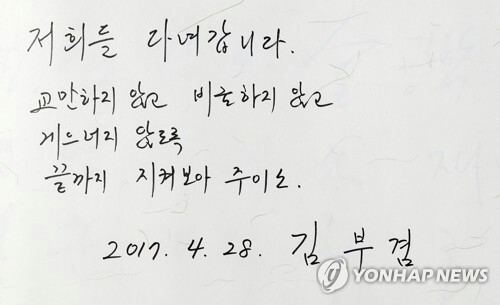 저희들 다녀갑니다.
교만하지 않고 비호하지 않고
게으르지 않도록
끝까지 지켜보아 주이소.
2017. 4. 28. 김부겸
YONHAP NEWS